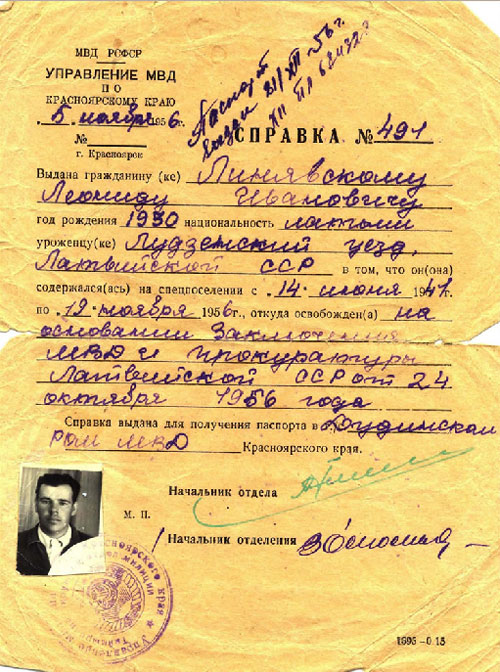 МВД РСФСР
УПРАВЛЕНИЕ МВД
ПО
КРАСНОЯРСКОМУ КРАЮ
5 ноября 1956 г.
№
г. Красноярск
Паспорт
выдан 21/XII-56 г.
XII ПА
СПРАВКА № 491
Выдана гражданину (ке) Линявскому
Леониду Ивановичу
год рождения 1930 национальность латыш
уроженцу(ке) Лудзенский уезд,
Латвийской ССР в том, что он(она)
содержался(ась) на спецпоселении с „14" июня 1941 г.
по „19" ноября 1956 г., откуда освобожден(а) на
основании Заключения
МВД и прокуратуры
Латвийской ССР от 24
октября 1956 года
Справка выдана для получения паспорта в Дудинском
РОМ МВД Красноярского края.
Начальник отдела
М. П.
Начальник отделения
Красноярского края
милиции
Управление
1695—0.15